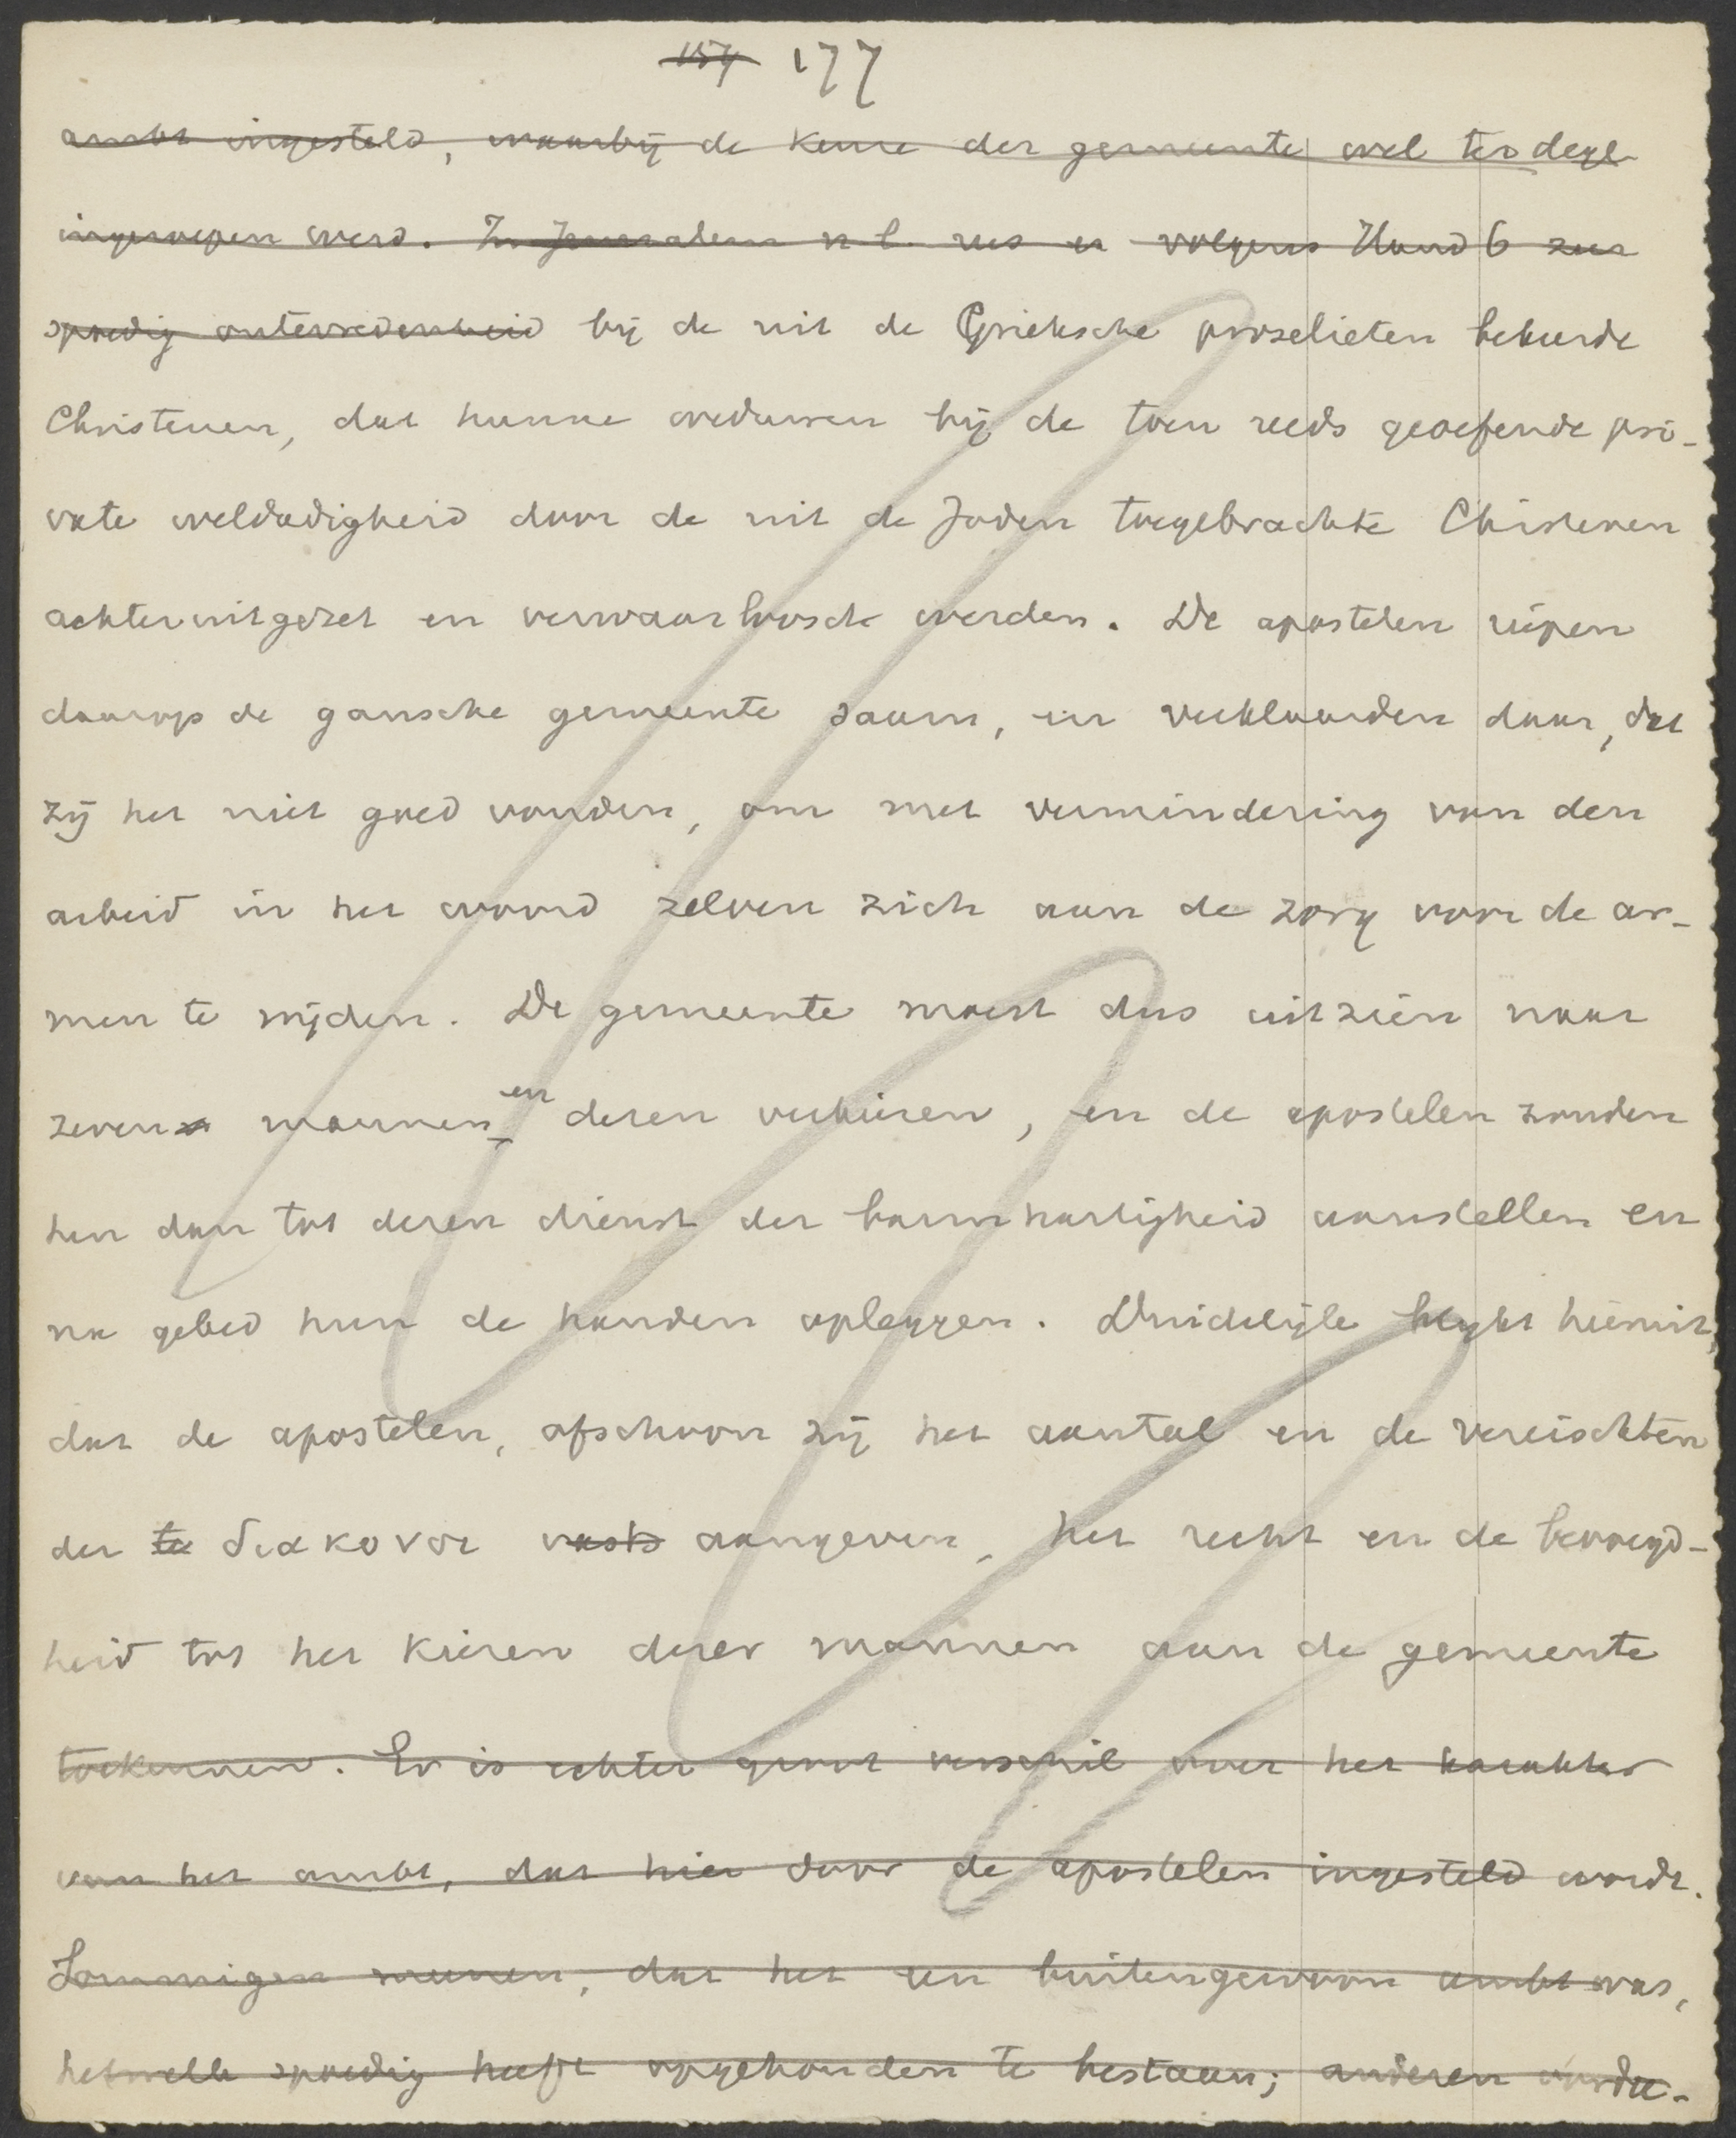 157 177
ambt ingesteld, waarbij de keuze der gemeente wel ter dege
ingeroepen werd. In Jeruzalem n.l. rees er volgens Hand 6 zeer
spoedig ontevredenheid bij de uit de Grieksche proselieten bekeerde
Christenen, dat hunne weduwen bij de toen reeds geoefende pri-
vate weldadigheid door de uit de Joden toegebrachte Christenen
achteruitgezet en verwaarloosd werden. De apostelen riepen
daarop de gansche gemeente saam, en verklaarden daar, dat
zij het niet goed vonden, om met vermindering van den
arbeid in het woord zelven zich aan de zorg voor de ar-
men te wijden. De gemeente moest dus uitzien naar
zeven mannen en dezen verkiezen, en de apostelen zouden
hen dan tot dezen dienst der barmhartigheid aanstellen en
na gebed hun de handen opleggen. Duidelijk blijkt hieruit,
dat de apostelen, ofschoon zij het aantal en de vereischten
der te διακονοι vast aangeven, het recht en de bevoegd-
heid tot het kiezen dezer mannen aan de gemeente
toekennen. Er is echter groot verschil over het karakter
van het ambt, dat hier door de apostelen ingesteld wordt.
Sommigen meenen, dat het een buitengewoon ambt was,
hetwelk spoedig heeft opgehouden te bestaan; anderen oordee-